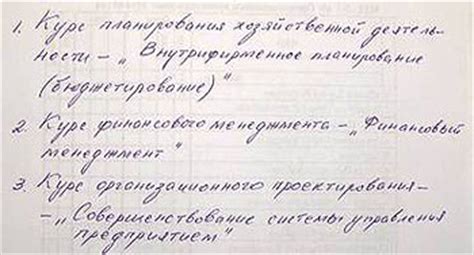 1. Курс планирования хозяйственной деятель-
ности – „Внутрифирменное планирование
(бюджетирование)"
2. Курс финансового менеджмента – „Финансовый
менеджмент"
3. Курс организационного проектирования –
– „Совершенствование системы управления
предприятием"